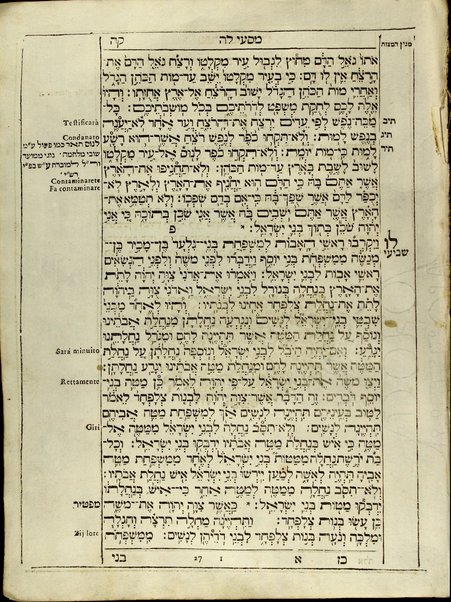 מסעי לה
קה
מנין המצות
אתו גאל הדם מחוץ לגבול עיר מקלטו ורצח גאל הדם את
הרצח אין לו דם: כי בעיר מקלטו ישב עד־מות הכהן הגדל
ואחרי מות הכהן הגדל ישוב הרצח אל־ארץ אחזתו: והיו
אלה לכם לחקת משפט לדרתיכם בכל מושבתיכם: כל
מכה־נפש לפי עדים ירצח את־הרצח ועד אחד לא־יענה
בנפש למות: ולא־תקחו כפר לנפש רצח אשר־הוא רשע
למות כי־מות יומת: ולא־תקחו כפר לנוס אל־עיר מקלטו
לשוב לשבת בארץ עד־מות הכהן: ולא־תחניפו את־הארץ
אשר אתם בה כי הדם הוא יחניף את־הארץ ולארץ לא־
יכפר לדם אשר שפך־בה כי־אם בדם שפכו: ולא תטמא את־
הארץ אשר אתם ישבים בה אשר אני שכן בתוכה כי אני
יהוה שכן בתוך בני ישראל: * פ
ויקרבו ראשי האבות למשפחת בני־גלעד בן־מכיר בן־
מנשה ממשפחת בני יוסף וידברו לפני משה ולפני הנשאים
ראשי אבות לבני ישראל: ויאמרו את־אדני צוה יהוה לתת
את־הארץ בנחלה בגורל לבני ישראל ואדני צוה ביהוה
לתת את־נחלת צלפחד אחינו לבנתיו: והיו לאחד מבני
שבטי בני־ישראל לנשים ונגרעה נחלתן מנחלת אבתינו
ונוסף על נחלת המטה אשר תהיינה להם ומגרל נחלתנו
יגרע: ואם־יהיה היבל לבני ישראל ונוספה נחלתן על נחלת
המטה אשר תהיינה להם ומנחלת מטה אבתינו יגרע נחלתן:
ויצו משה את־בני ישראל על־פי יהוה לאמר כן מטה בני־
יוסף דברים: זה הדבר אשר־צוה יהוה לבנות צלפחד לאמר
לטוב בעיניהם תהיינה לנשים אך למשפחת מטה אביהם
תהיינה לנשים: ולא־תסב נחלה לבני ישראל ממטה אל־
מטה כי איש בנחלת מטה אבתיו ידבקו בני ישראל: וכל־
בת ירשת נחלה ממטות בני ישראל לאחד ממשפחת מטה
אביה תהיה לאשה למען יירשו בני ישראל איש נחלת אבתיו:
ולא־תסב נחלה ממטה למטה אחר כי־איש בנחלתו
ידבקו מטות בני ישראל: * כאשר צוה יהוה את־משה
כן עשו בנות צלפחד: ותהיינה מחלה תרצה וחגלה
ומלכה ונעה בנות צלפחד לבני דדיהן לנשים: ממשפחת
תיב
תיג
תיד
לו
שביעי
מפטיר
Testificarà
Condanato
לנוס תאר כמו פעול ע״מ
שובי מלחמה
רש״י
Contaminarete
Fa contaminare
Sarà minuito
Rettamente
Giri
Zij loro
כז א 27 1 בני